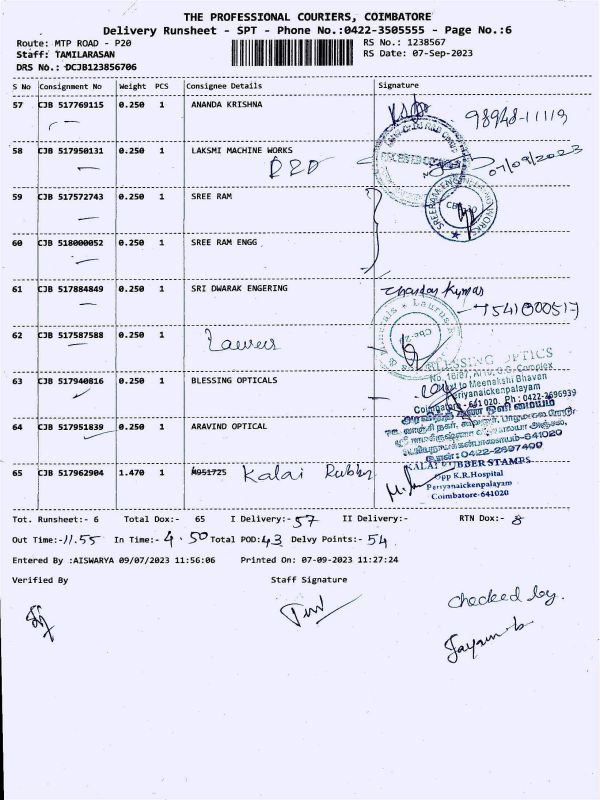 THE PROFESSIONAL COURIERS, COIMBATORE
Delivery Runsheet - SPT - Phone No.:0422-3505555 - Page No.:6
Route: MTP ROAD - P20 RS No.: 1238567
Staff: TAMILARASAN RS Date: 07-Sep-2023
DRS No.: DCJB123856706
S No Consignment No Weight PCS Consignee Details Signature
57 CJB 517769115 0.250 1 ANANDA KRISHNA 98948-11119
58 CJB 517950131 0.250 1 LAKSMI MACHINE WORKS 07/09/2023
59 CJB 517572743 0.250 1 SREE RAM
60 CJB 518000052 0.250 1 SREE RAM ENGG
61 CJB 517884849 0.250 1 SRI DWARAK ENGERING
62 CJB 517587588 0.250 1
BLESSING OPTICS
Next to Meenakshi Bhavan
Periyanaickenpalayam
Coimbatore - 641 020. Ph : 0422-2696939
63 CJB 517940816 0.250 1 BLESSING OPTICALS
64 CJB 517951839 0.250 1 ARAVIND OPTICAL
0422-2697400
65 CJB 517962904 1.470 1 M951725 Kalai Rubber
KALAI RUBBER STAMPS
Opp K.R.Hospital
Periyanaickenpalayam
Coimbatore-641020
Tot. Runsheet:- 6 Total Dox:- 65 I Delivery:- 57 II Delivery:- RTN Dox:- 8
Out Time:- 11.55 In Time:- 4.50 Total POD: 43 Delvy Points:- 54
Entered By :AISWARYA 09/07/2023 11:56:06 Printed On: 07-09-2023 11:27:24
Verified By Staff Signature
checked by.